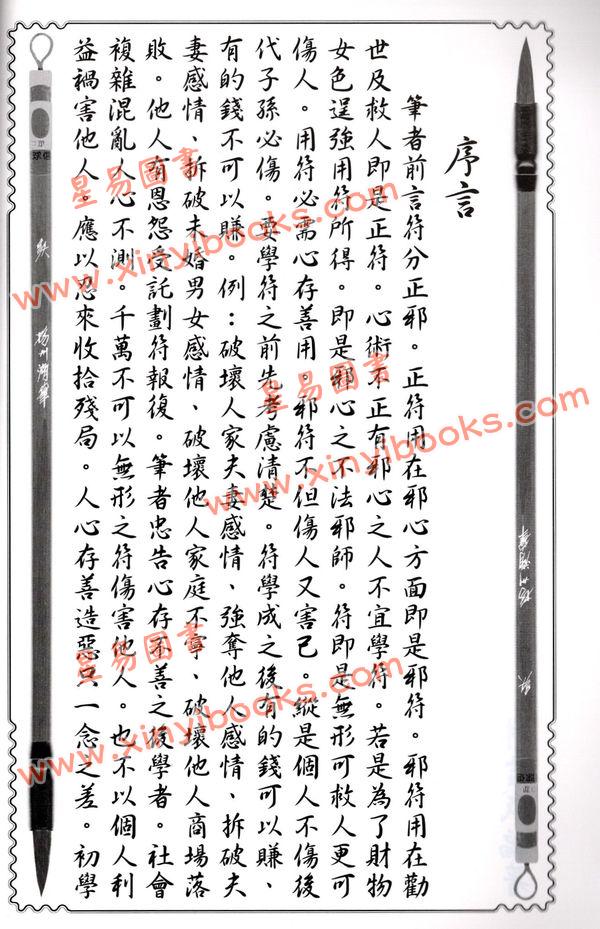 序言
筆者前言符分正邪。正符用在邪心方面即是邪符。邪符用在勸
世及救人即是正符。心術不正有邪心之人不宜學符。若是為了財物
女色逞強用符所得。即是邪心之不法邪師。符即是無形可救人更可
傷人。用符必需心存善用。邪符不但傷人又害己。縱是個人不傷後
代子孫必傷。要學符之前先考慮清楚。符學成之後有的錢可以賺、
有的錢不可以賺。例：破壞人家夫妻感情、強奪他人感情、拆破夫
妻感情、拆破未婚男女感情、破壞他人家庭不寧、破壞他人商場落
敗。他人有恩怨受託劃符報復。筆者忠告心存不善之後學者。社會
複雜混亂人心不測。千萬不可以無形之符傷害他人。也不以個人利
益禍害他人。應以忍來收拾殘局。人心存善造惡只一念之差。初學
星易图書
www.xinyibooks.com
星易图書
www.xinyibooks.com
星易图書
www.xinyibooks.com